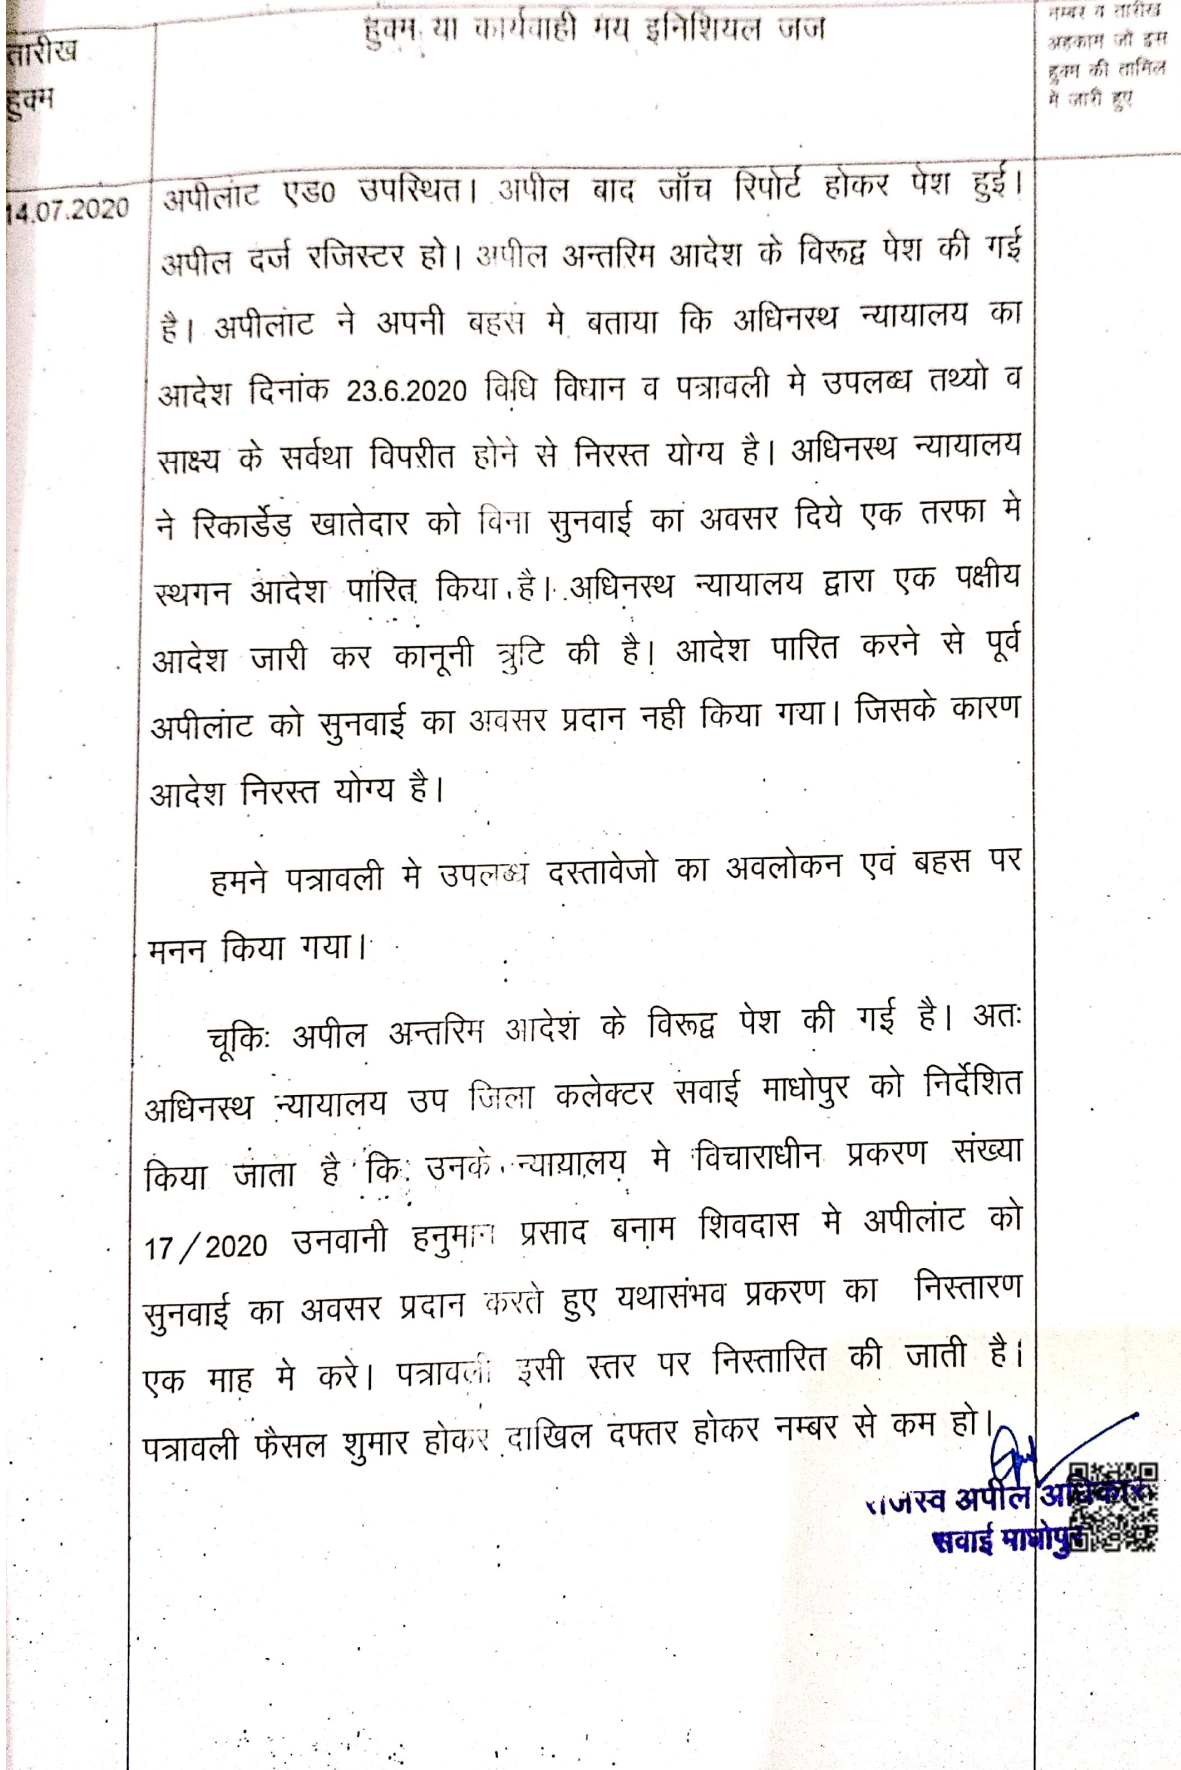 तारीख
हुक्म
हुक्म या कार्यवाही मय इनिशियल जज
नम्बर व तारीख
अहकाम जो इस
हुक्म की तामिल
मे जारी हुए
14.07.2020
अपीलांट एड0 उपस्थित। अपील बाद जॉच रिपोर्ट होकर पेश हुई।
अपील दर्ज रजिस्टर हो। अपील अन्तरिम आदेश के विरूद्व पेश की गई
है। अपीलांट ने अपनी बहस मे बताया कि अधिनस्थ न्यायालय का
आदेश दिनांक 23.6.2020 विधि विधान व पत्रावली मे उपलब्ध तथ्यो व
साक्ष्य के सर्वथा विपरीत होने से निरस्त योग्य है। अधिनस्थ न्यायालय
ने रिकार्डेड खातेदार को बिना सुनवाई का अवसर दिये एक तरफा मे
स्थगन आदेश पारित किया है। अधिनस्थ न्यायालय द्वारा एक पक्षीय
आदेश जारी कर कानूनी त्रुटि की है। आदेश पारित करने से पूर्व
अपीलांट को सुनवाई का अवसर प्रदान नही किया गया। जिसके कारण
आदेश निरस्त योग्य है।
हमने पत्रावली मे उपलब्ध दस्तावेजो का अवलोकन एवं बहस पर
मनन किया गया।
चूकिः अपील अन्तरिम आदेश के विरूद्व पेश की गई है। अतः
अधिनस्थ न्यायालय उप जिला कलेक्टर सवाई माधोपुर को निर्देशित
किया जाता है कि उनके न्यायालय मे विचाराधीन प्रकरण संख्या
17/2020 उनवानी हनुमान प्रसाद बनाम शिवदास मे अपीलांट को
सुनवाई का अवसर प्रदान करते हुए यथासंभव प्रकरण का निस्तारण
एक माह मे करे। पत्रावली इसी स्तर पर निस्तारित की जाती है।
पत्रावली फैसल शुमार होकर दाखिल दफ्तर होकर नम्बर से कम हो।
राजस्व अपील अधिकारी
सवाई माधोपुर